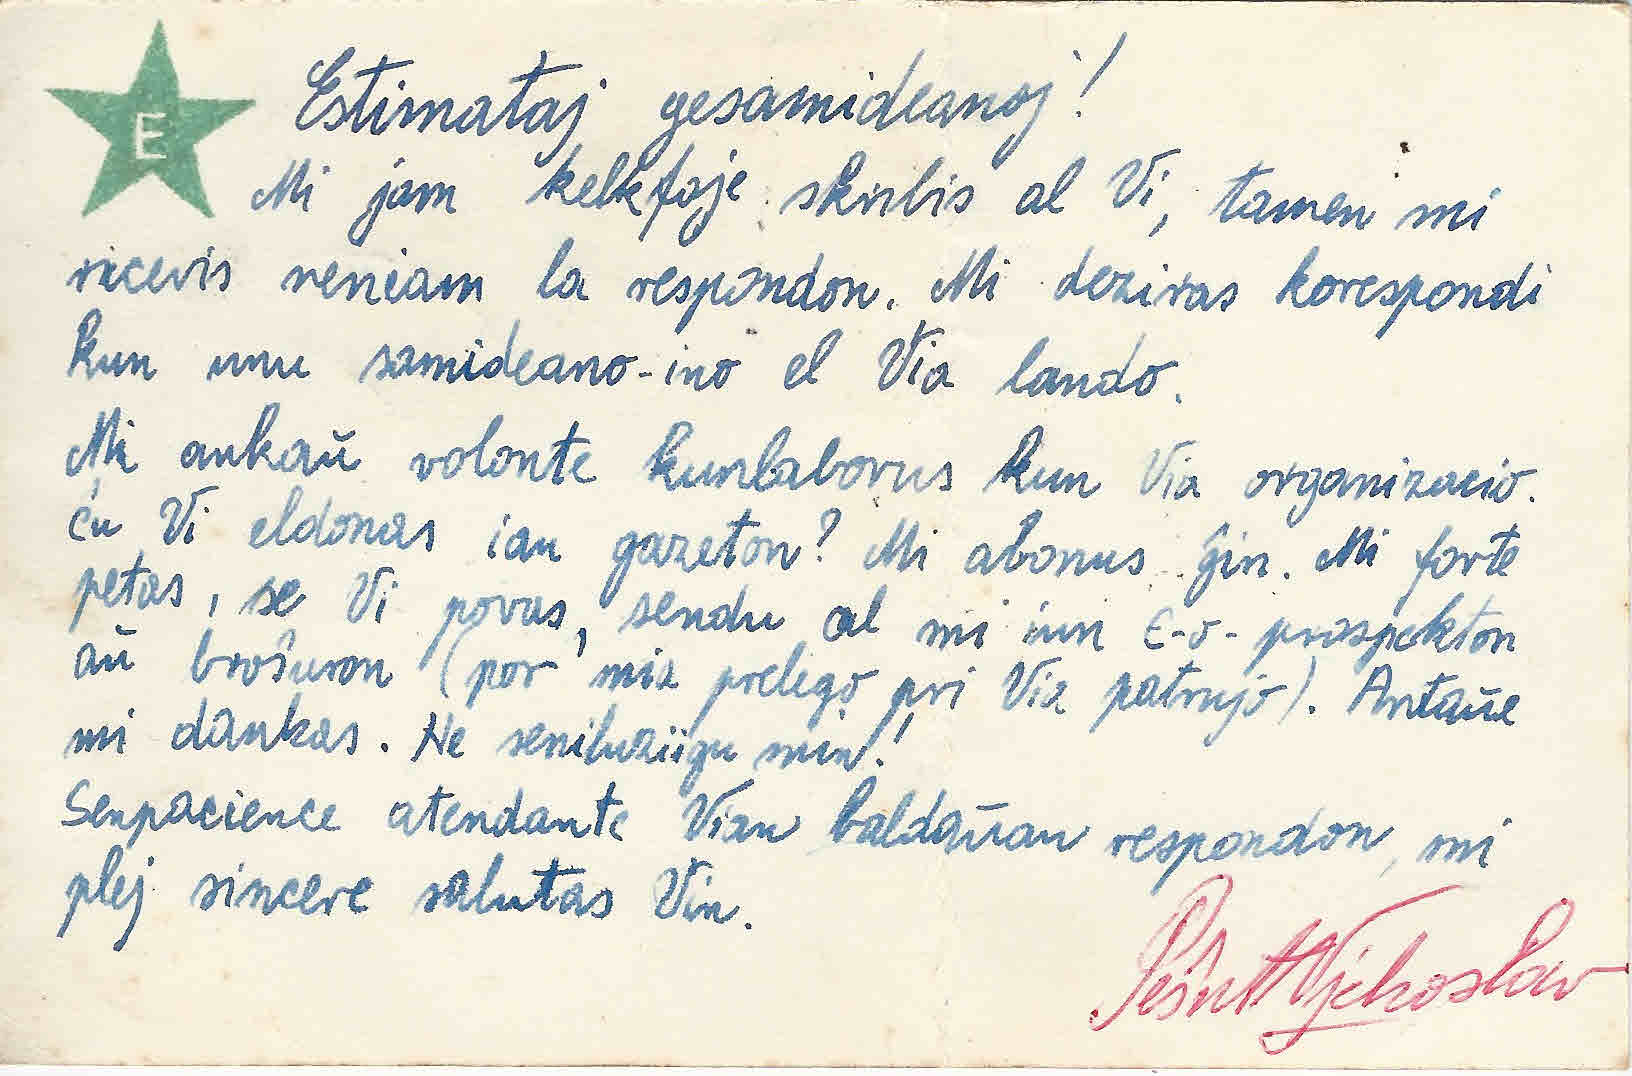 E
Estimataj gesamideanoj!
Mi jam kelkfoje skribis al Vi, tamen mi
ricevis neniam la respondon. Mi deziras korespondi
kun unu samideano-ino el Via lando.
Mi ankaŭ volonte kunlaborus kun Via organizacio.
Ĉu Vi eldonas ian gazeton? Mi abonus ĝin. Mi forte
petas, se Vi povas, sendu al mi iun E-o-prospekton
aŭ broŝuron (por mia prelego pri Via patrujo). Antaŭe
mi dankas. Ne seniluziigu min!
Senpacience atendante Vian baldaŭan respondon, mi
plej sincere salutas Vin.
Vjekoslav